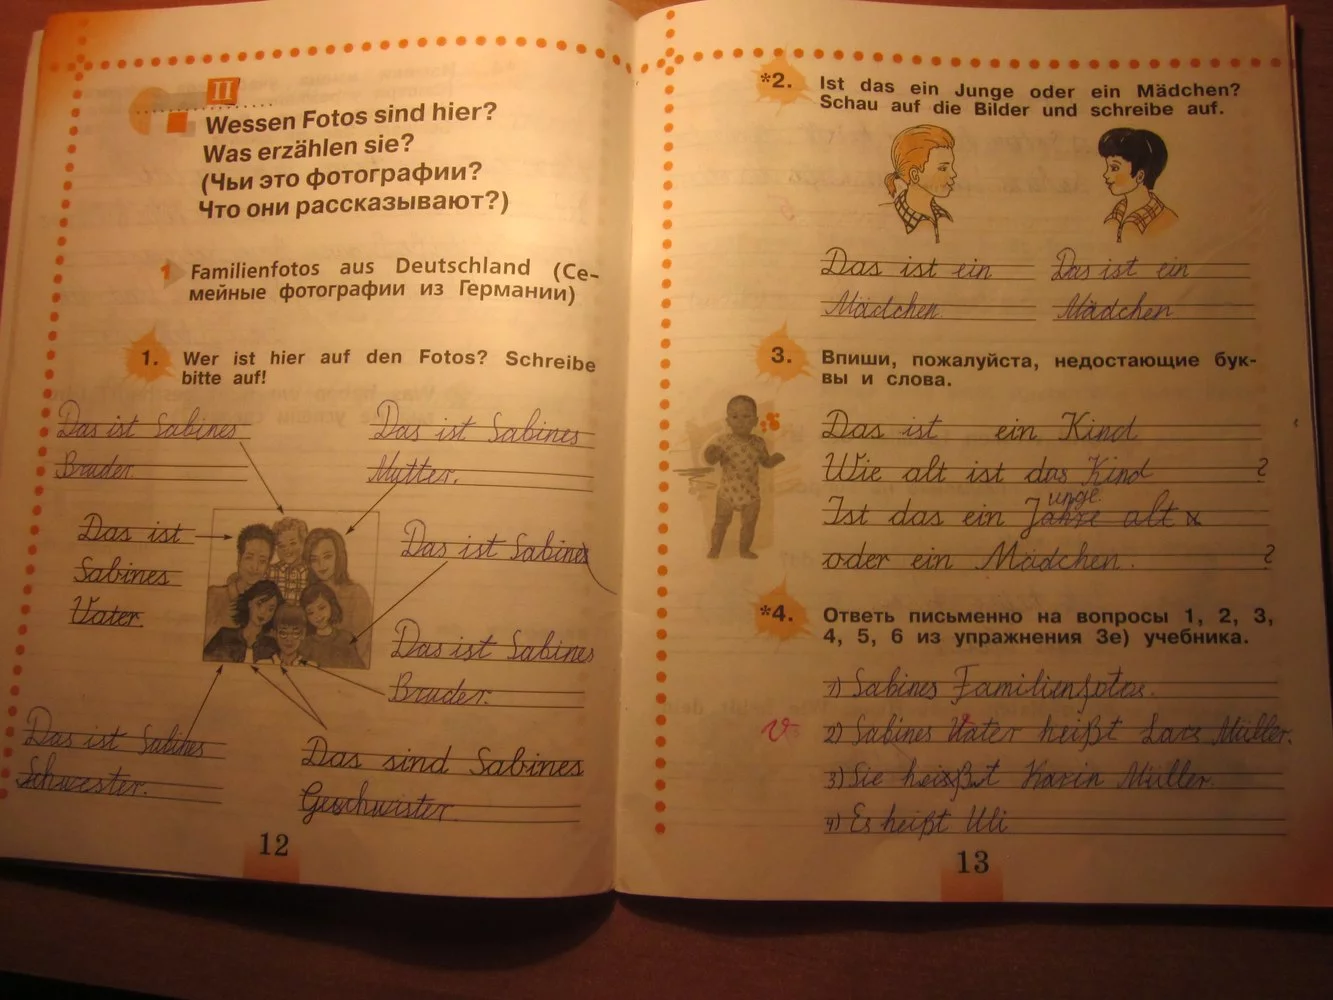 II
Wessen Fotos sind hier?
Was erzählen sie?
(Чьи это фотографии?
Что они рассказывают?)
1 Familienfotos aus Deutschland (Се-
мейные фотографии из Германии)
1. Wer ist hier auf den Fotos? Schreibe
bitte auf!
Das ist Sabines
Bruder.
Das ist Sabines
Mutter.
Das ist
Sabines
Vater.
Das ist Sabines
Das ist Sabines
Bruder.
Das ist Sabines
Schwester.
Das sind Sabines
Geschwister.
12
*2. Ist das ein Junge oder ein Mädchen?
Schau auf die Bilder und schreibe auf.
Das ist ein
Mädchen
Das ist ein
Mädchen
3. Впиши, пожалуйста, недостающие бук-
вы и слова.
Das ist ein Kind
Wie alt ist das Kind ?
unge
Ist das ein Jahre alt
oder ein Mädchen. ?
*4. Ответь письменно на вопросы 1, 2, 3,
4, 5, 6 из упражнения 3е) учебника.
1) Sabines Familienfotos.
v 2) Sabines Vater heißt Lars Müller.
3) Sie heißt Karin Müller.
4) Es heißt Uli
13